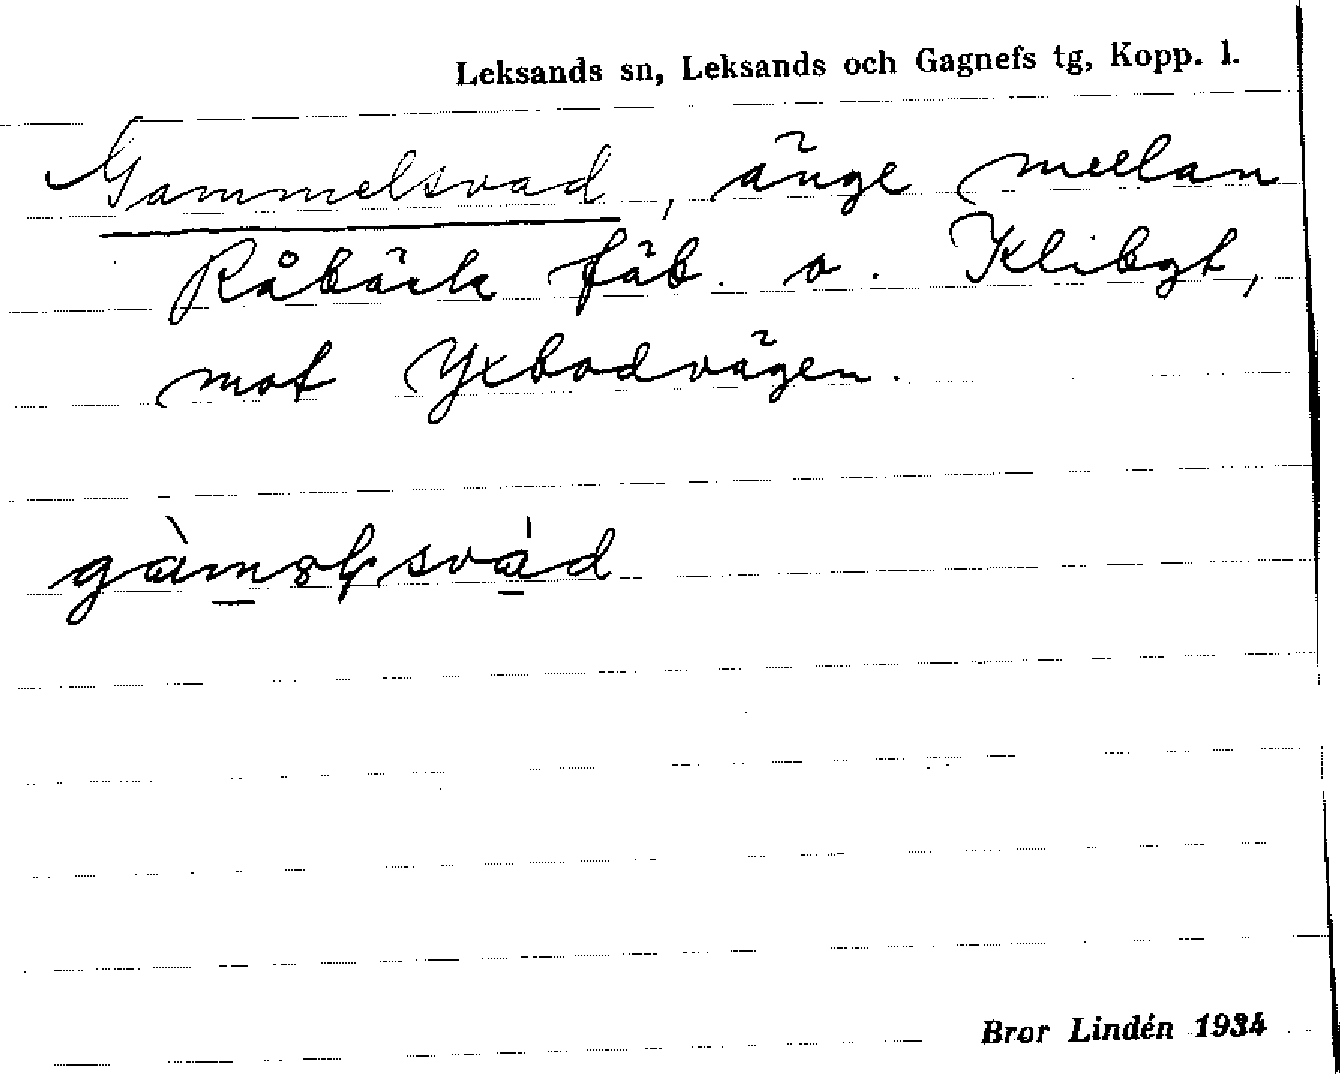 Leksands sn, Leksands och Gagnefs tg, Kopp. l.
Gammelsvad, änge mellan
Råbäck fäb. o. Klibgt,
mot Yxbodvägen.
Bror Lindén 1934